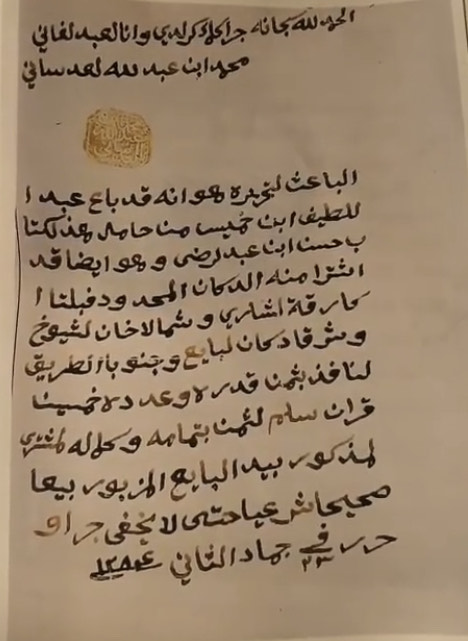 الحمد لله سبحانه جرا كل كرلدي وانا لعبد لفاني
محمد ابن عبد لله لحد ساني
الباعث لتحريره هو انه قد باع عبد ا
للطيف ابن خميس من حامل هذلكتا
ب حسن ابن عبد لرضى وهو ايضا قد
اشترا منه الدكان المحد ود قبلتا ا
لحارقة اشاري وشمالا خان لشيوخ
وشرقا دكان لبايع وجنوبا الطريق
لنافذ بثمن قدره وعد ده خمسين
قران سلم لثمن بتمامه وكماله لمشتري
لمذكور بيد البايع المزبور بيعا
صحيحا شرعيا حتى لا يخفى جرا و
حرر في ٢٣ جماد الثاني ١٢٨٤